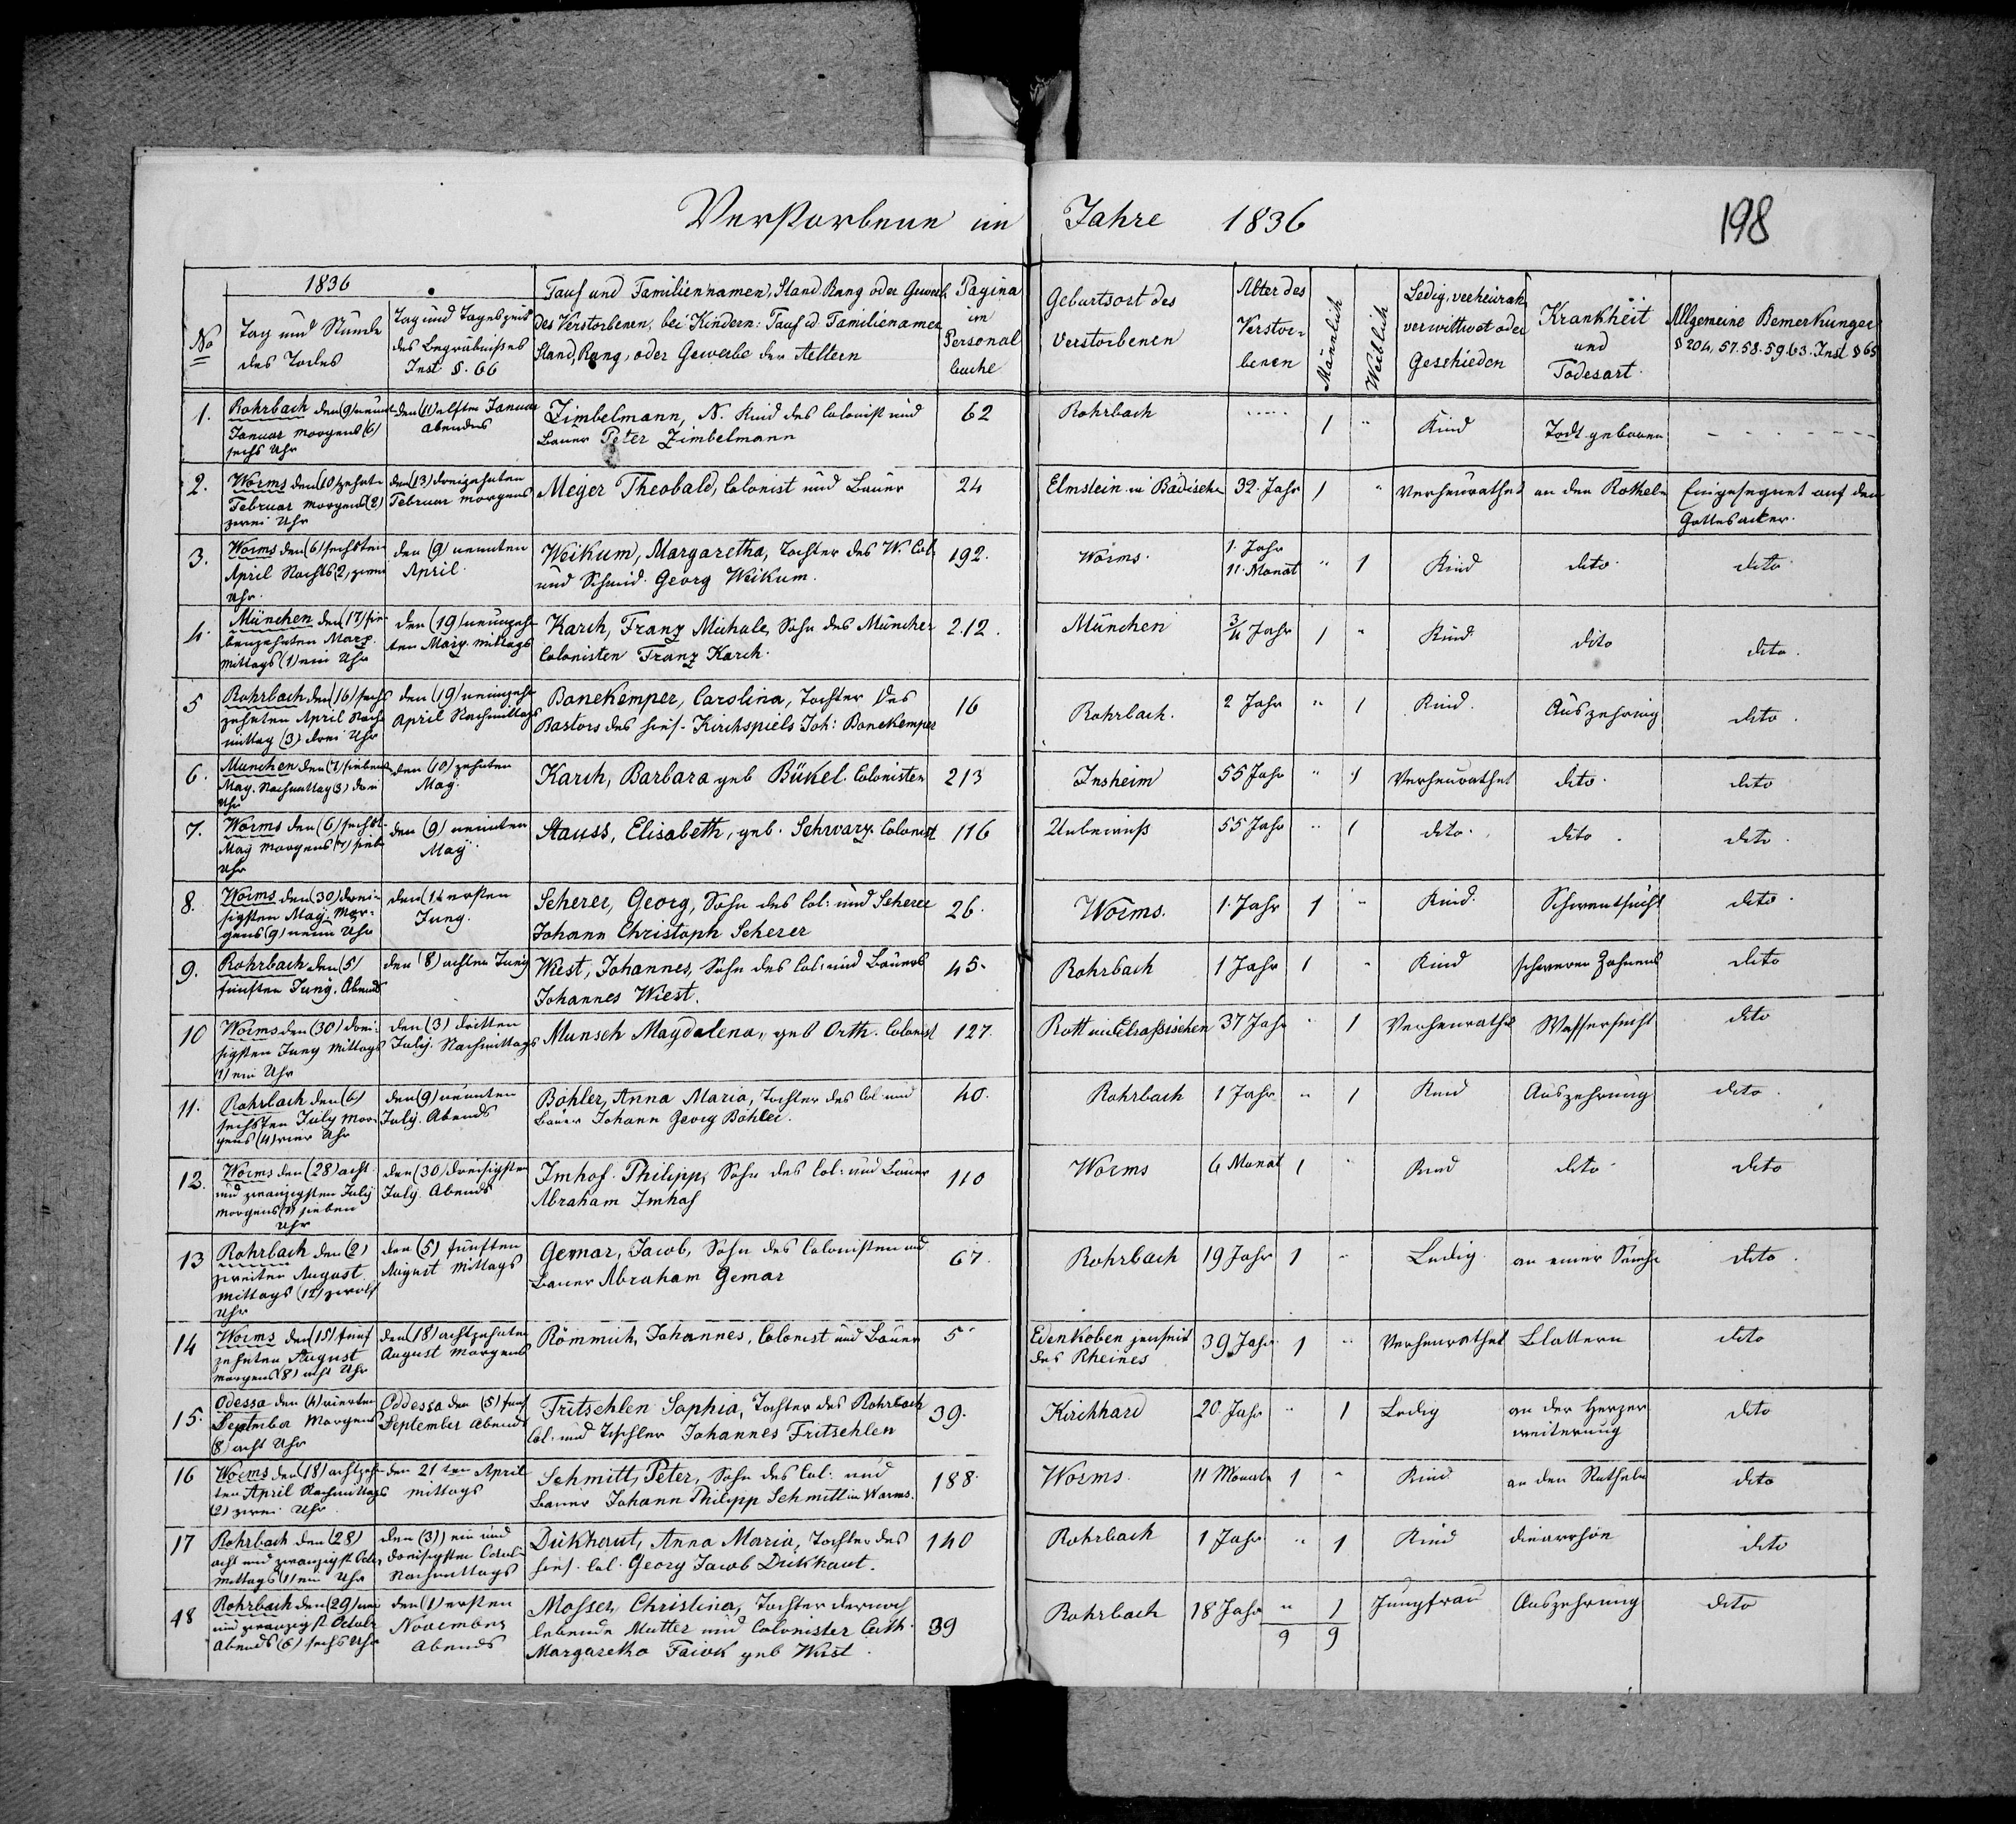 Verstorbene im Jahre 1836
198
1836
No
Tag und Stunde
des Todes
Tag und Tageszeit
des Begräbnißes
Inst. §. 66
Tauf und Familiennamen, Stand Rang oder Gewerb
des Verstorbenen, bei Kindern: Tauf u Familienamen
Stand, Rang, oder Gewerbe der Aeltern
Pagina
im
Personal
buche
Geburtsort des
Verstorbenen
Alter des
Verstor-
benen
Männlich
Weiblich
Ledig, verheirath
verwittwet oder
Geschieden
Krankheit
und
Todesart.
Allgemeine Bemerkungen
§ 204, 57. 58. 59. 63. Inst. § 65
1.
Rohrbach den (9) neunt
Januar morgens (6)
sechs Uhr
den (11) elften Januar
Abends
Zimbelmann, N. Kind des Colonist und
Bauer Peter Zimbelmann
62
Rohrbach
1 "
Kind
Todt geboren
2.
Worms den (10) zehnte
Februar morgens (2)
zwei Uhr
den (13) dreizehnten
Februar morgens
Meyer Theobald, Colonist und Bauer
24
Elmstein in Badische
32. Jahr
1 "
Verheurathet
an den Rötheln
Eingesegnet auf den
Gottesacker.
3.
Worms den (6) sechsten
April Nachts (2, zwei
Uhr.
den (9) neunten
April.
Weikum, Margaretha, Tochter des W. Col.
und Schmid. Georg Weikum.
192.
Worms.
1. Jahr
11. Monat
" 1
Kind
dito.
dito.
4.
München den (17) sie-
benzehnten Marz.
mittags (1) ein Uhr
den (19) neunzeh-
ten Marz. mittags
Karch, Franz Michale, Sohn des Müncher
Colonisten Franz Karch.
212.
München
3/4 Jahr
1 "
Kind
dito
dito.
5
Rohrbach den (16) sechs
zehnten April Nach
mittag (3) drei Uhr
den (19) neunzeh
April Nachmittags
Bonekemper, Carolina, Tochter des
Pastors des hies. Kirchspiels Joh: Bonekemper
16
Rohrbach.
2 Jahr
" 1
Kind.
Auszehrung
dito.
6.
München den (7) siebent
May. Nachmittag (3) drei
Uhr
den (10) zehnten
May.
Karch, Barbara geb Bükel. Colonisten
213
Insheim
55 Jahr
" 1
Verheurathet
dito.
dito
7.
Worms den (6) sechst
May morgens (7) sieb
Uhr
den (9) neunten
May.
Stauss, Elisabeth, geb. Schwarz. Colonist
116
Unbewußt
55 Jahr
" 1
dito.
dito.
dito.
8.
Worms den (30) drei-
sigsten May. Mor-
gens (9) neun Uhr
den (1. ersten
Juny.
Scherer, Georg, Sohn des Col: und Scherer
Johann Christoph Scherer
26.
Worms.
1. Jahr
1 "
Kind.
Schwentsucht
dito.
9.
Rohrbach den (5)
fünften Juny. Abends
den (8) achten Juny
Wiest, Johannes, Sohn des Col: und Bauers
Johannes Wiest.
45.
Rohrbach
1 Jahr
1 "
Kind
schweren Zahnens
dito
10
Worms den (30) drei-
sigsten Juny Mittags
(1) ein Uhr
den (3) dritten
July. Nachmittags
Munsch Magdalena, geb Orth. Colonist
127.
Rott im Elsaßischen
37 Jahr
" 1
Verheurathet
Wassersucht
dito
11.
Rohrbach den (6)
sechsten July Mor-
gens (4) vier Uhr
den (9) neunten
July. Abends
Böhler, Anna Maria, Tochter des Col und
Bauer Johann Georg Böhler.
40.
Rohrbach
1 Jahr
" 1
Kind
Auszehrung
dito.
12.
Worms den (28) acht
und zwanzigsten July
morgens (7) sieben
Uhr
den (30) dreisigsten
July. Abends
Imhof. Philipp, Sohn des Col: und Bauer
Abraham Imhof
110
Worms
6 Monat
1 "
Kind
dito
dito
13
Rohrbach den (2)
zweiten August.
mittags (12) zwölf
Uhr
den (5) fünften
August Mittags
Gemar, Jacob, Sohn des Colonisten und
Bauer Abraham Gemar
67.
Rohrbach
19 Jahr
1 "
Ledig.
an einer
dito.
14
Worms den (15) fünf
zehnten August
morgens (8) acht Uhr
den (18) achtzehnten
August Morgens
Römmich, Johannes, Colonist und Bauer
5
Edenkoben jenseit
des Rheines
39 Jahr
1 "
Verheurathet
Blattern
dito
15.
Odessa den (4) vierten
September Morgens
(8) acht Uhr
Oddessa den (5) fünf
September Abends
Fritschlen Sophia, Tochter des Rohrbach
Col. und Tischler Johannes Fritschlen
39.
Kirchhard
20. Jahr
" 1
Ledig
an der Herzer
weiterung
dito
16
Worms den (18) achtzeh-
ten April Nachmittags
(2) zwei Uhr
den 21 ten April
mittags
Schmitt, Peter, Sohn des Col: und
Bauer Johann Philipp Schmitt in Worms.
188.
Worms.
11 Monate
1 "
Kind
an den Rötheln
dito
17
Rohrbach den (28)
acht und zwanzigst Octo
Mittags (1) ein Uhr
den (31) ein und
dreisigsten Octob
Nachmittags
Dükhaut, Anna Maria, Tochter des
hies. Col. Georg Jacob Dükhaut.
140
Rohrbach
1 Jahr
" 1
Kind
diearrhöe
dito
18
Rohrbach den (29) neun
und zwanzigst Octobr
Abends (6) sechs Uhr
den (1) ersten
November
Abends
Mosser, Christina, Tochter der noch
lebende Mutter und Colonister Cath.
Margaretha geb Wiest.
39
Rohrbach
18 Jahr
" 1
Jungfrau
Auszehrung
dito
9 9